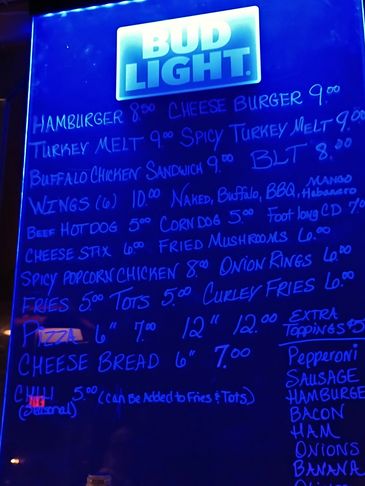 BUD
LIGHT
HAMBURGER 8⁵⁰ CHEESE BURGER 9.⁰⁰
TURKEY MELT 9⁰⁰ SPICY TURKEY MELT 9.⁰⁰
BUFFALO CHICKEN SANDWICH 9⁰⁰ BLT 8.⁰⁰
WINGS (6) 10.⁰⁰ NAKED, Buffalo, BBQ, MANGO Habanero
BEEF HOTDOG 5⁰⁰ CORNDOG 5⁰⁰ Foot long CD 7.⁰⁰
CHEESE STIX 6⁰⁰ FRIED MUSHROOMS 6.⁰⁰
SPICY POPCORN CHICKEN 8⁰⁰ ONION RINGS 6.⁰⁰
FRIES 5⁰⁰ TOTS 5.⁰⁰ CURLEY FRIES 6.⁰⁰
PIZZA 6" 7⁰⁰ 12" 12.⁰⁰ EXTRA TOPPINGS
CHEESE BREAD 6" 7.⁰⁰
CHILI 5.⁰⁰ (Can Be Added to Fries & Tots)
(Seasonal)
Pepperoni
SAUSAGE
HAMBURGE
BACON
HAM
ONIONS
BANANA